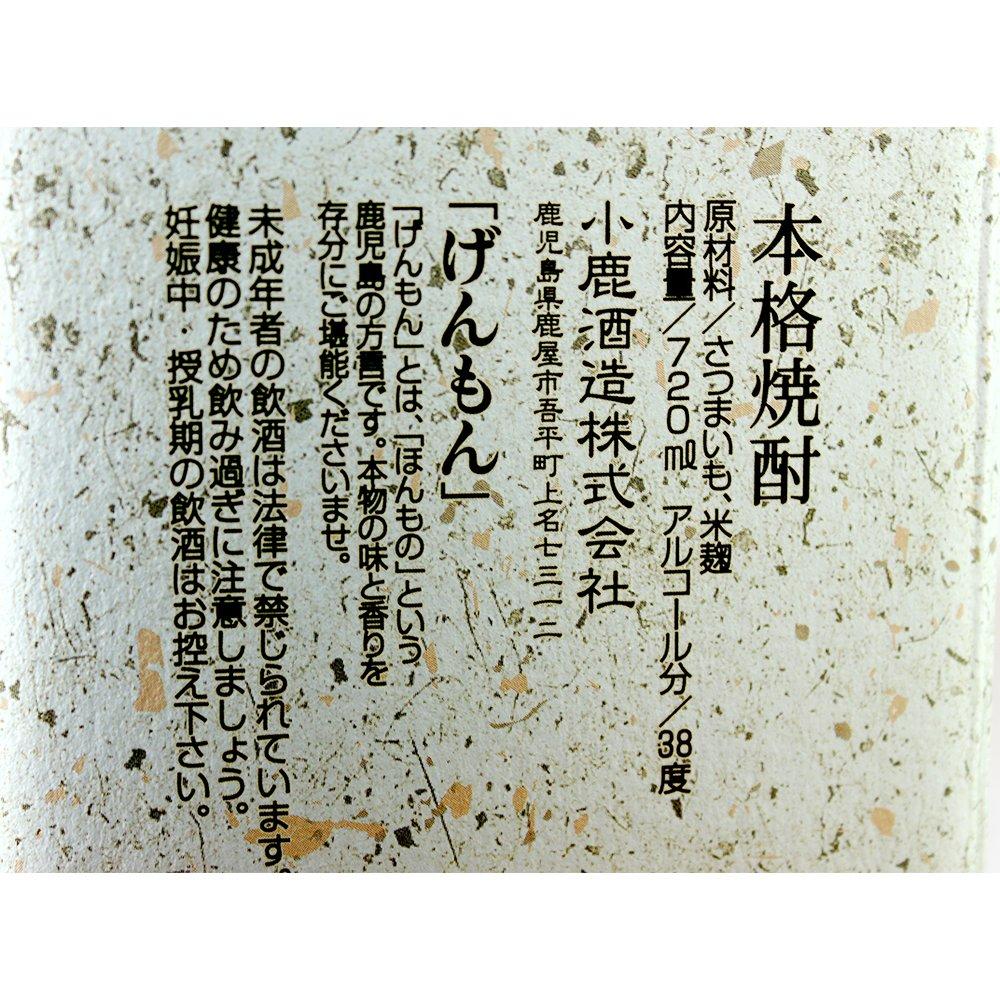 本格焼酎
原材料/さつまいも、米麹
内容量/720㎖ アルコール分/38度
小鹿酒造株式会社
鹿児島県鹿屋市吾平町上名七三一二
「げんもん」
「げんもん」とは、「ほんもの」という
鹿児島の方言です。本物の味と香りを
存分にご堪能くださいませ。
未成年者の飲酒は法律で禁じられています。
健康のため飲み過ぎに注意しましょう。
妊娠中・授乳期の飲酒はお控え下さい。